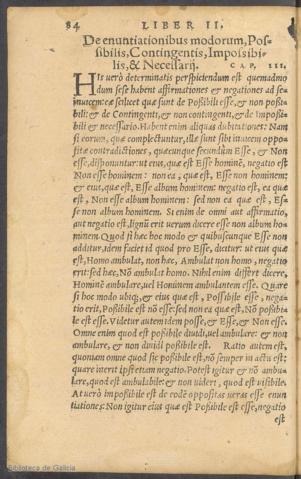 84 LIBER II.
De enuntiationibus modorum, Pos-
sibilis, Contingentis, Impossibi-
lis, & Necessarij. CAP, III.
HIs verò determinatis perspiciendum est quemadmo
dum sese habent affirmationes & negationes ad se-
inuicem: eæ scilicet quæ sunt de Possibili esse, & non possi-
bili: & de Contingenti, & non contingenti, & de impossi-
bili & necessario. Habent enim aliquas dubitationes: Nam
si eorum, quæ complectuntur, illæ sunt sibi inuicem oppo-
sitæ contradictiones, quæcunque secundùm Esse, & Non
esse, disponuntur: vt eius, quæ est Esse hominē, negatio est
Non esse hominem: non ea, quæ est, Esse non hominem:
& eius, quæ est, Esse album hominem: negatio est, ea quæ
est, Non esse album hominem: sed non ea quæ est, Es-
se non album hominem. Si enim de omni aut affirmatio,
aut negatio est, lignū erit verum dicere esse non album ho-
minem. Quod si hoc modo & quibuscunque Esse non
additur, idem faciet id quod pro Esse, dicetur: vt eius quæ
est, Homo ambulat, non hæc, Ambulat non homo, negatio
erit: sed hæc, Nō ambulat homo. Nihil enim differt dicere,
Hominē ambulare, vel Hominem ambulantem esse. Quare
si hoc modo vbiq;, & eius quæ est, Possibile esse, nega-
tio erit, Possibile est nō esse: sed non ea quæ est, Nō possibi-
le est esse. Videtur autem idem posse, & Esse, & Non esse.
Omne enim quod est possibile diuidi, vel ambulare: & non
ambulare, & non diuidi possibile est. Ratio autem est,
quoniam omne quod sic possibile est, nō semper in actu est:
quare inerit ipsi etiam negatio. Potest igitur & nō ambu-
lare, quod est ambulabile: & non videri, quod est visibile.
At verò impossibile est de eodē oppositas veras esse enun
tiationes: Non igitur eius quæ est Possibile esse, negatio
est
Biblioteca de Galicia